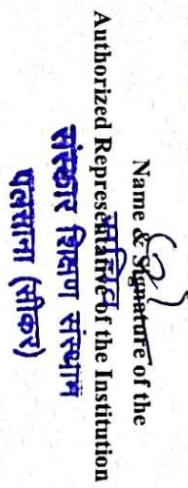 Name & Signature of the
Authorized Representative of the Institution
सचिव
संस्कार शिक्षण संस्थान
पलसाना (सीकर)